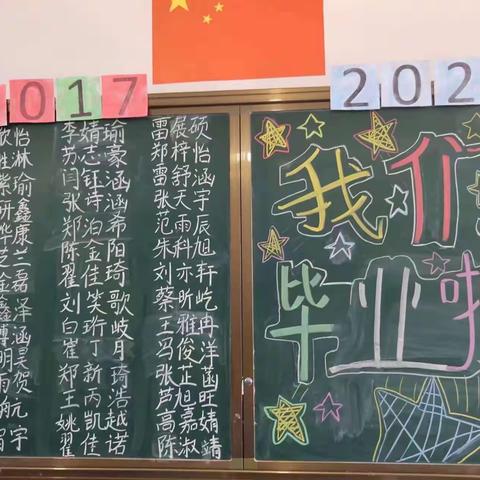 017
202
怡
淋
瑜
鑫
康
兰
鑫磊
泽
涵
明昊
雨贺
航元
宇
李婧瑜
苏志豪
闫钰涵
张诗涵
郑泊希
陈金阳
翟佳琦
刘笑歌
白珩岐
崔丁月
郑新琦
王内浩
姚凯越
翟佳诺
雷展硕
郑梓怡
雷舒涵
张天宇
范雨辰
朱科旭
刘亦轩
蔡昕屹
王雅冉
冯俊洋
张芷菡
芦旭旺
高嘉婧
陈淑靖
我们
毕业啦